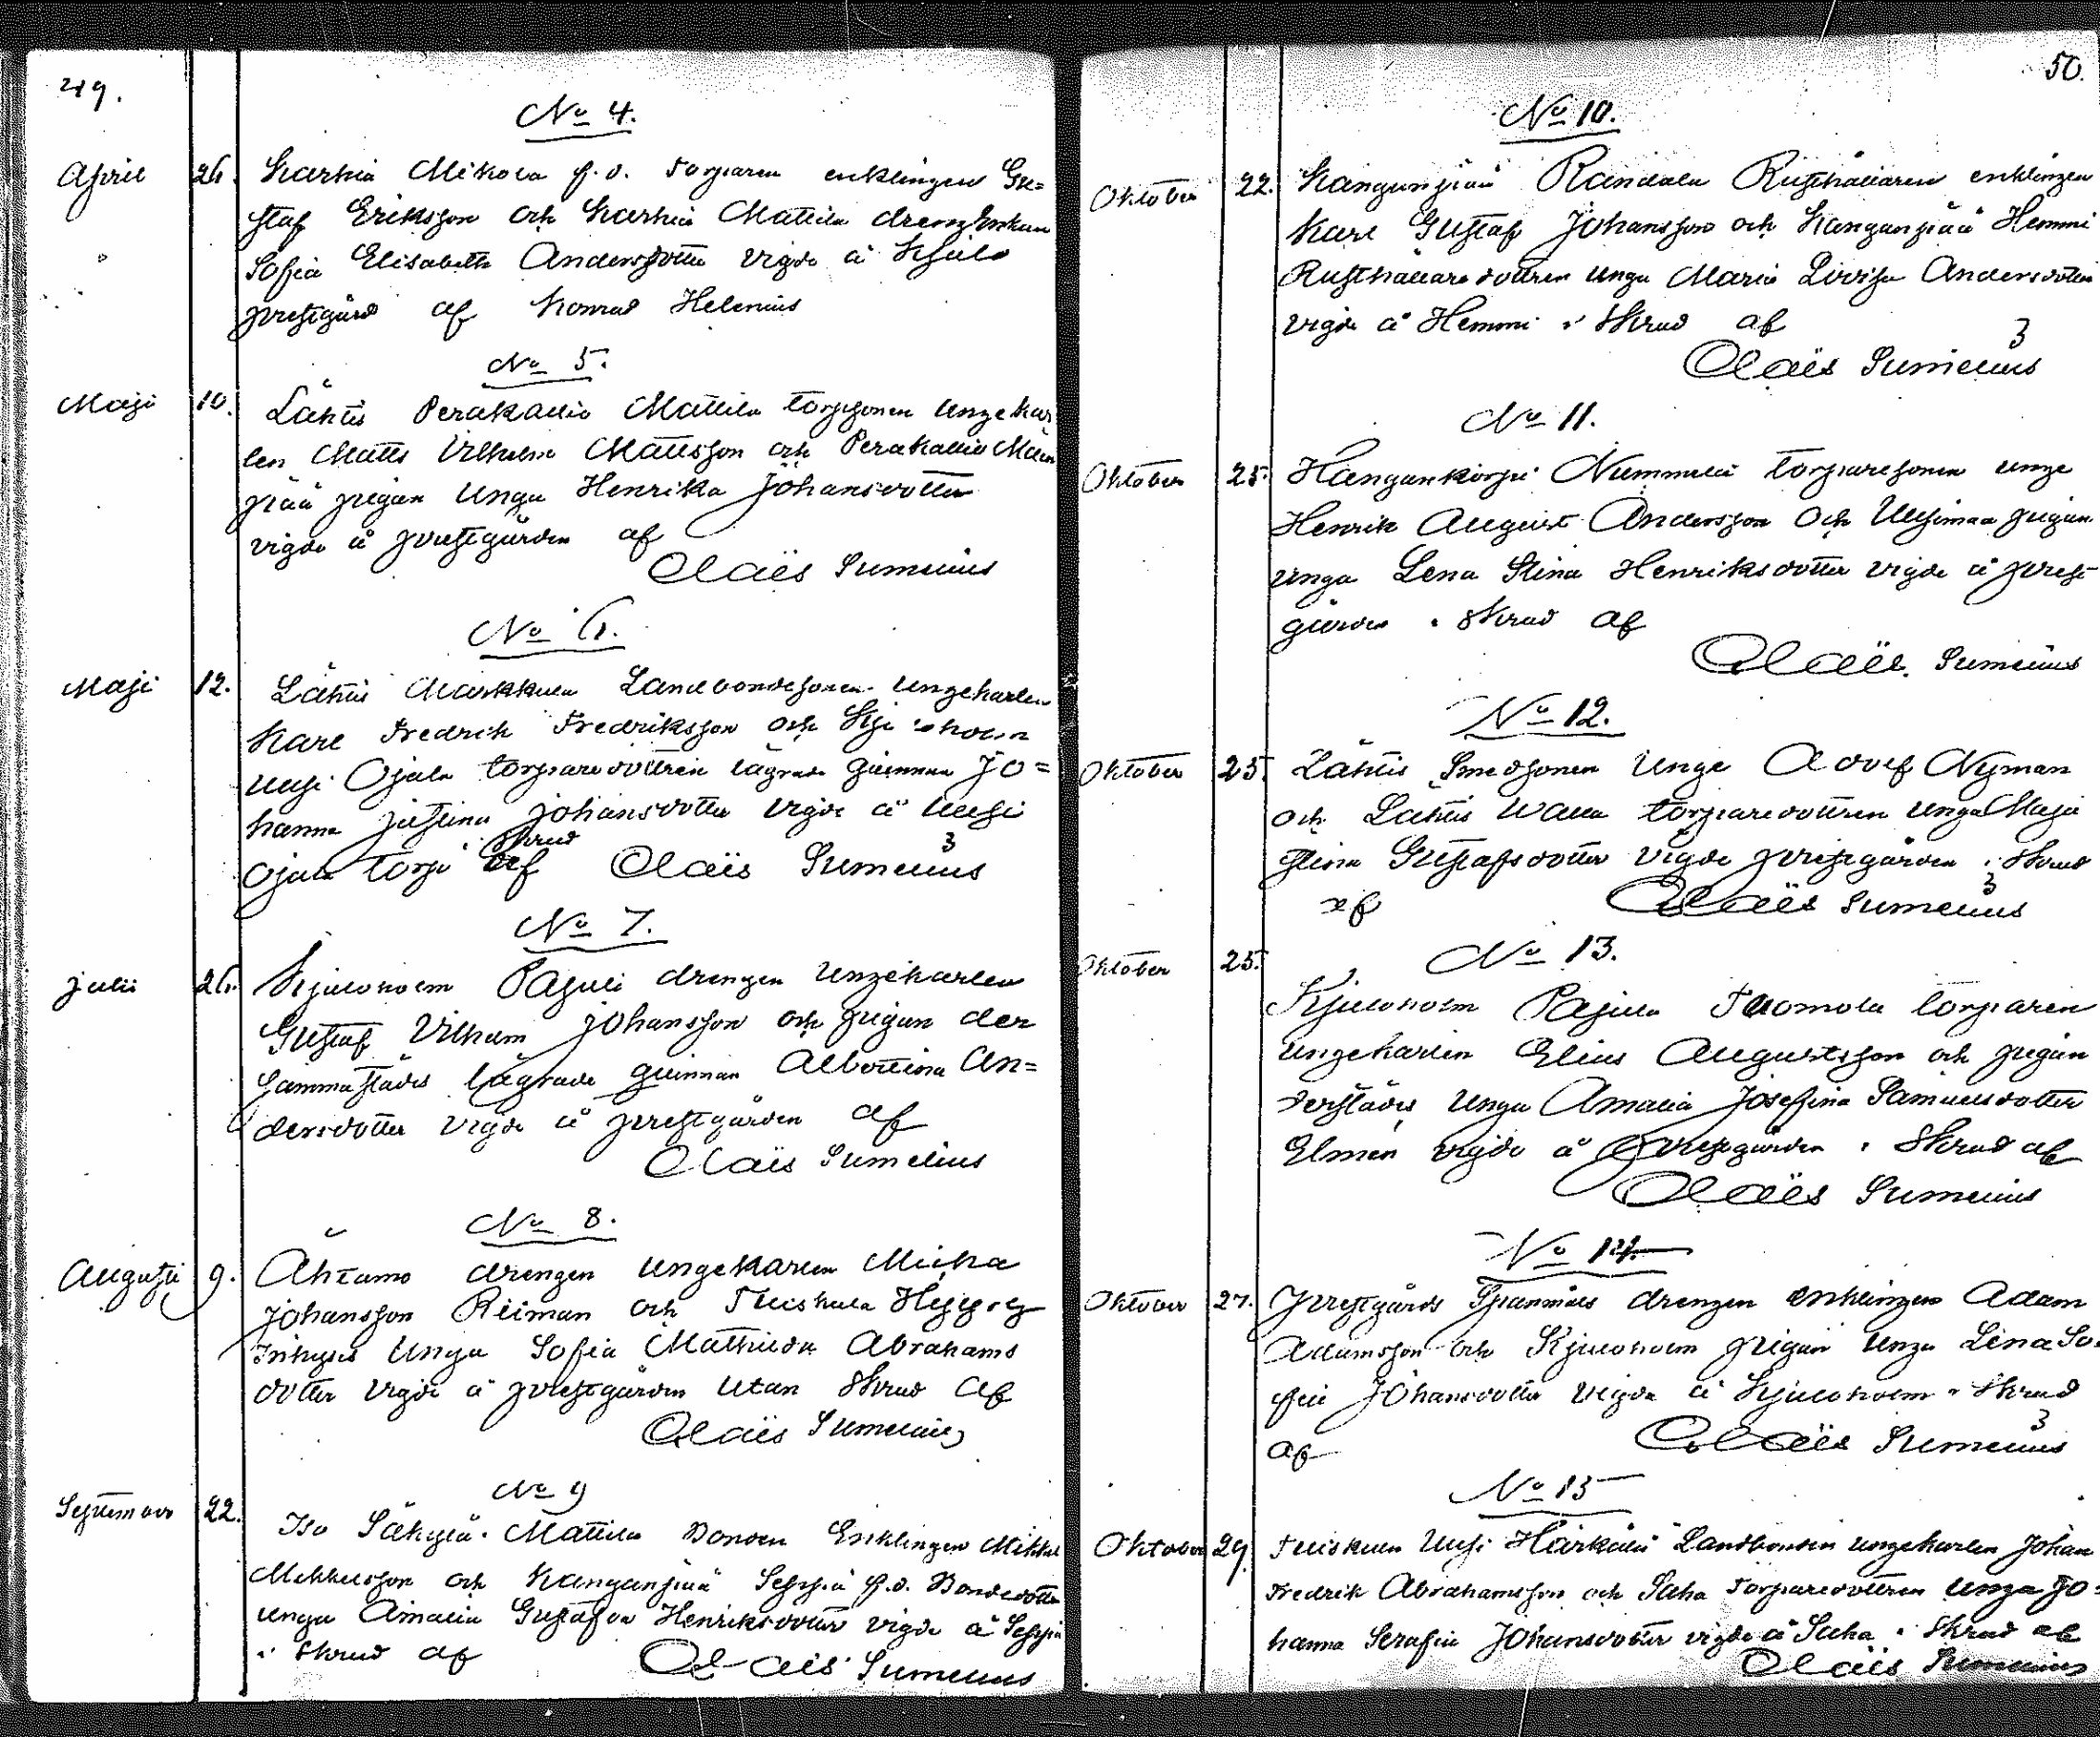 49.
No 4.
April 26. Karhia Mikola f.d. Torparen enklingen Gu=
staf Eriksson och Karhia Mattila drengenkan
Sofia Elisabeth Andersdotter vigde å Kjulo
prestgård af Konrad Helenius
No 5.
Maji 10. Lähtis Perakallio Mattila torpsonen ungekar
len Matts Vilhelm Mattsson och Perakallio
pää pigan Unga Henrika Johansdotter
vigde å prestgården af
Claës Sumelius
No 6.
Maji 12. Lähtis Markkula Landbondesonen Ungekarlen
Karl Fredrik Fredriksson och Kjuloholm
Uusi Ojala torparedottren lägrade qvinnan Jo=
hanna Justina Johansdotter vigde å Uusi
Ojala torp i Skrud af Claës Sumelius
3
No 7.
Julii 26. Kjuloholm Pajula drengen Ungekarlen
Gustaf Vilhelm Johansson och pigan der
sammastädes lägrade qvinnan Albertina An=
dersdotter vigde å prestgården af
Claës Sumelius
No 8.
Augusti 9. Ahtamo drengen Ungekarlen Micha
Johansson Reiman och Tuiskula
Inhyses Unga Sofia Mathilda Abrahams
dotter vigde å prestgården utan Skrud af
Claës Sumelius
No 9
September 22. Iso Säkylä Mattila Bonden Enklingen Mikkel
Mikkelsson och Kanganpää Seppä f.d. Bondedotter
unga Amalia Gustafva Henriksdotter vigde å Seppä
i Skrud af Claës Sumelius
50.
No 10.
Oktober 22. Kanganpää Randala Rusthållaren enklingen
Karl Gustaf Johansson och Kanganpää Hemmi
Rusthållaredottren unga Maria Lovisa Andersdotter
vigde å Hemmi i Skrud af
3
Claës Sumelius
No 11.
Oktober 25. Kangankorpi Nummela torparesonen unge
Henrik August Andersson och Uusimaa pigan
unga Lena Stina Henriksdotter vigde å prest
gården i Skrud af
Claës Sumelius
No 12.
Oktober 25. Lähtis Smedsonen Unge Adolf Nyman
och Lähtis Walla torparedottren unga Maja
Stina Gustafsdotter vigde prestgården i Skrud
af Claës Sumelius
3
No 13.
Oktober 25.
Kjuloholm Pajula Tuomola torparen
ungekarlen Elius Augustsson och pigan
derstädes unga Amalia Josefina Samuelsdotter
Elmén vigde å prestgården i Skrud af
Claës Sumelius
No 14.
Oktober 27. Prestgårds Spannmåls drengen enklingen Adam
Adamsson och Kjuloholm pigan unga Lena So
fia Johansdotter vigde å Kjuloholm i Skrud
af Claës Sumelius
3
No 15
Oktober 29. Tuiskula Uusi Härkälä Landbonden ungekarlen Johan
Fredrik Abrahamsson och Suha Torparedottren Unga Jo=
hanna Serafia Johansdotter vigde å Suha i Skrud af
Claës Sumelius